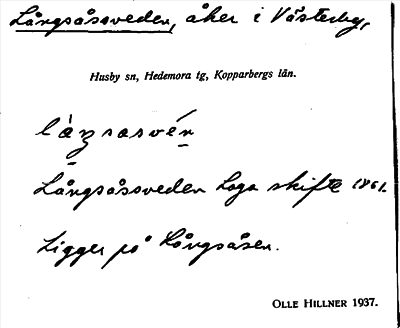 Långsåssveden, åker i Västerby,
Husby sn, Hedemora tg, Kopparbergs län.
Långsåssveden Laga skifte 1861.
Ligger på Långsåsen.
OLLE HILLNER 1937.